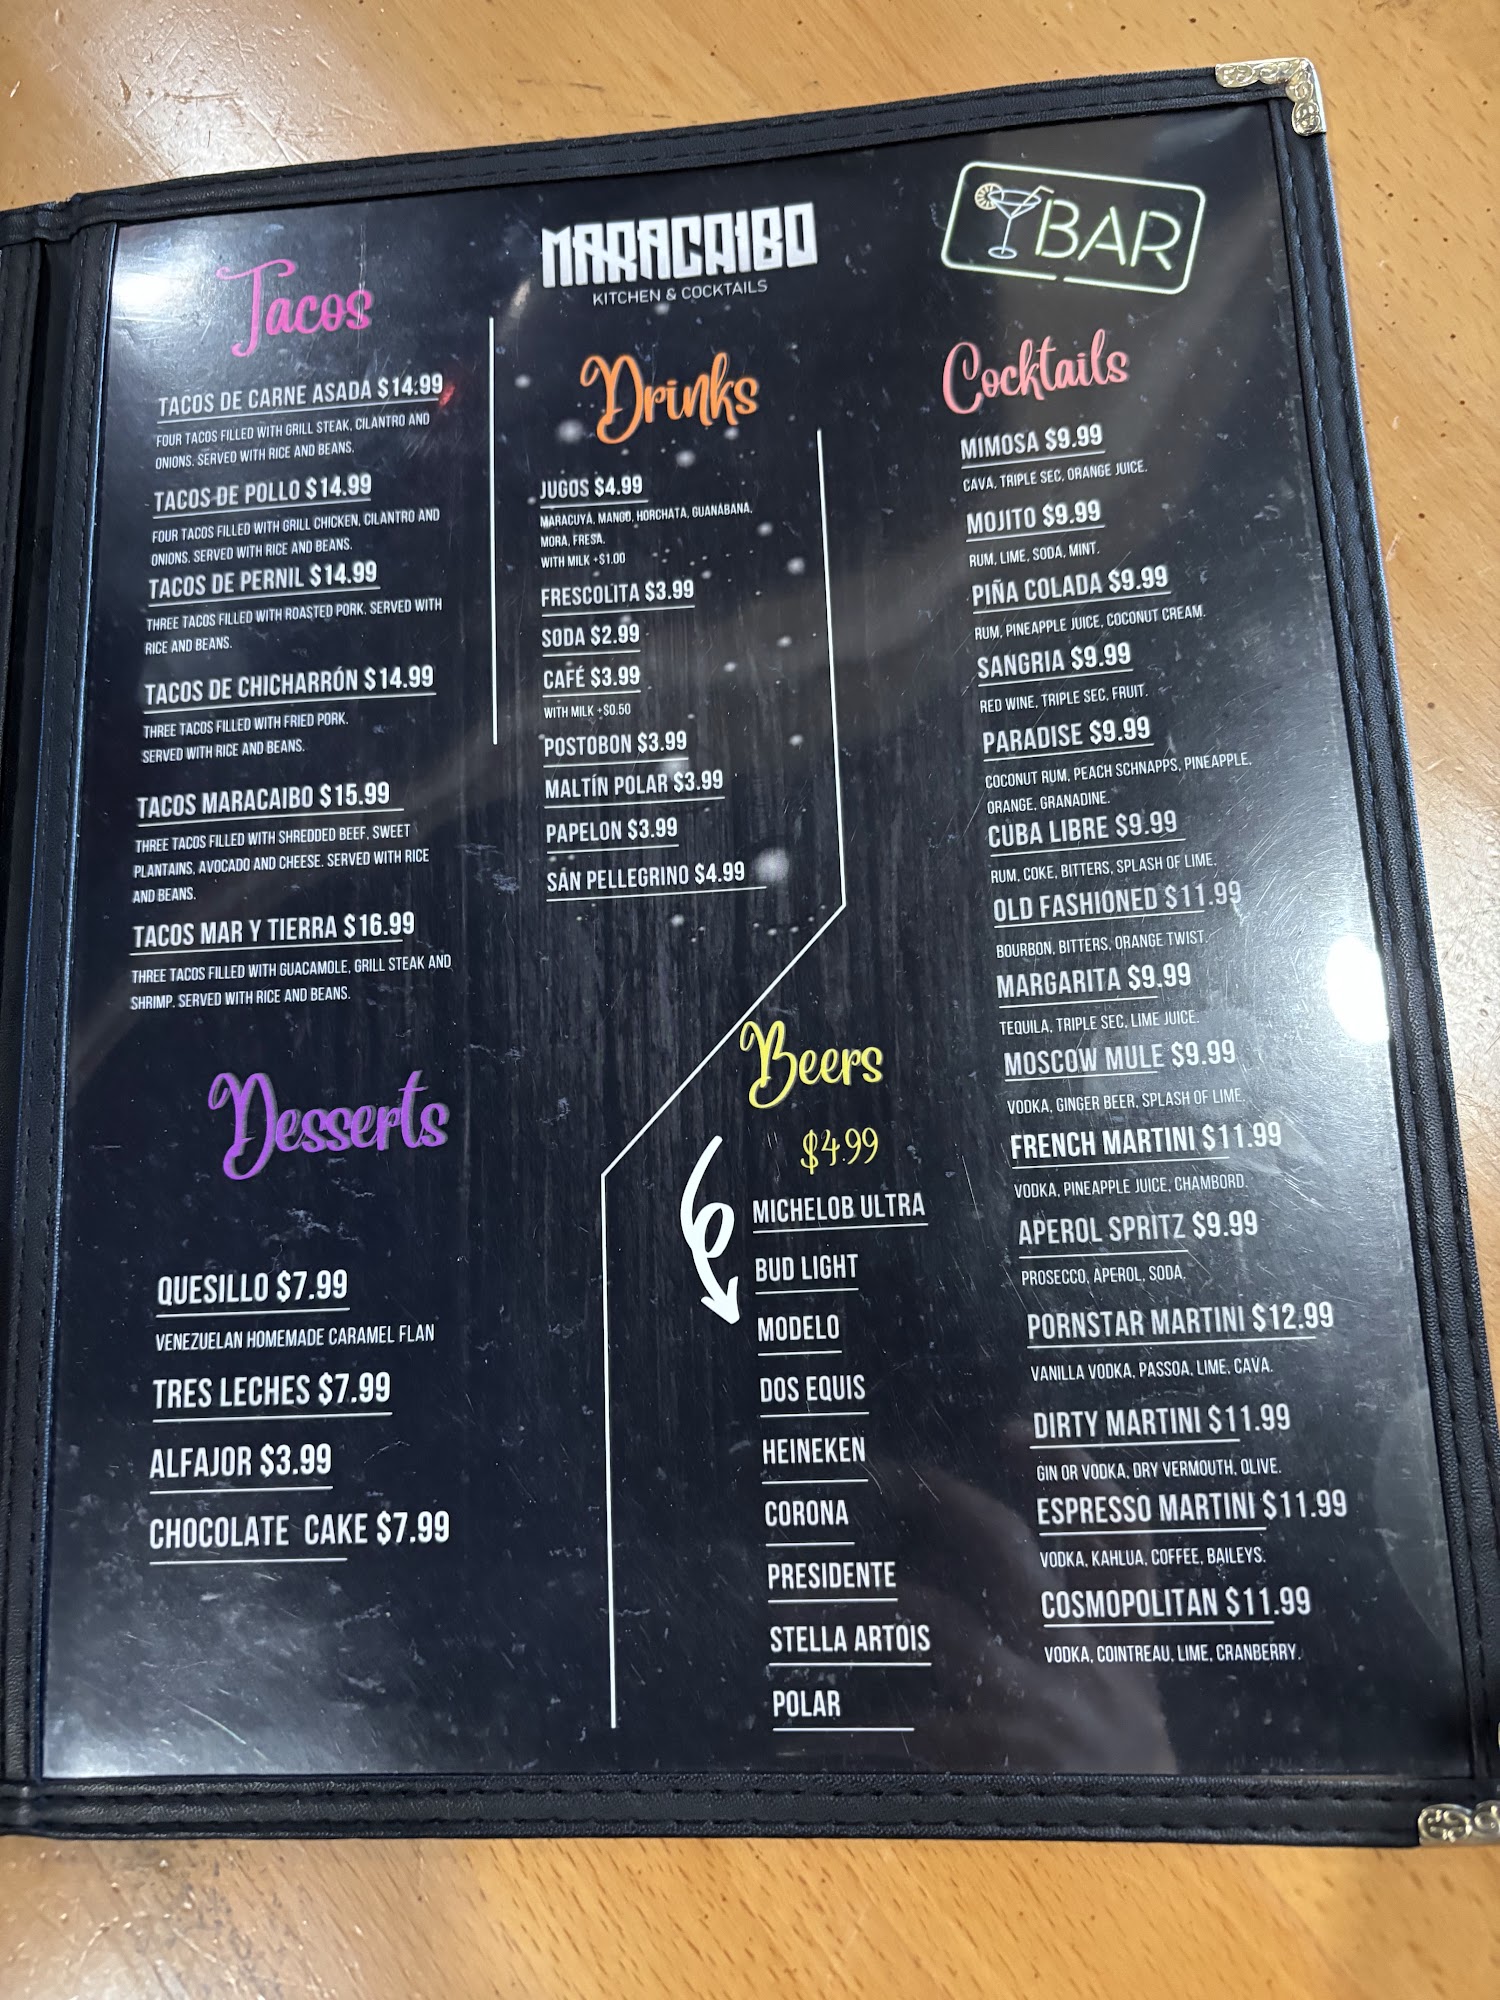 MARACAIBO
KITCHEN & COCKTAILS
BAR
Tacos
TACOS DE CARNE ASADA $14.99
FOUR TACOS FILLED WITH GRILL STEAK, CILANTRO AND
ONIONS. SERVED WITH RICE AND BEANS.
TACOS DE POLLO $14.99
FOUR TACOS FILLED WITH GRILL CHICKEN, CILANTRO AND
ONIONS. SERVED WITH RICE AND BEANS.
TACOS DE PERNIL $14.99
THREE TACOS FILLED WITH ROASTED PORK. SERVED WITH
RICE AND BEANS.
TACOS DE CHICHARRÓN $14.99
THREE TACOS FILLED WITH FRIED PORK.
SERVED WITH RICE AND BEANS.
TACOS MARACAIBO $15.99
THREE TACOS FILLED WITH SHREDDED BEEF, SWEET
PLANTAINS, AVOCADO AND CHEESE. SERVED WITH RICE
AND BEANS.
TACOS MAR Y TIERRA $16.99
THREE TACOS FILLED WITH GUACAMOLE, GRILL STEAK AND
SHRIMP. SERVED WITH RICE AND BEANS.
Desserts
QUESILLO $7.99
VENEZUELAN HOMEMADE CARAMEL FLAN
TRES LECHES $7.99
ALFAJOR $3.99
CHOCOLATE CAKE $7.99
Drinks
JUGOS $4.99
MARACUYÁ, MANGO, HORCHATA, GUANÁBANA,
MORA, FRESA.
WITH MILK +$1.00
FRESCOLITA $3.99
SODA $2.99
CAFÉ $3.99
WITH MILK +$0.50
POSTOBON $3.99
MALTÍN POLAR $3.99
PAPELON $3.99
SAN PELLEGRINO $4.99
Beers
$4.99
MICHELOB ULTRA
BUD LIGHT
MODELO
DOS EQUIS
HEINEKEN
CORONA
PRESIDENTE
STELLA ARTOIS
POLAR
Cocktails
MIMOSA $9.99
CAVA, TRIPLE SEC, ORANGE JUICE.
MOJITO $9.99
RUM, LIME, SODA, MINT.
PIÑA COLADA $9.99
RUM, PINEAPPLE JUICE, COCONUT CREAM.
SANGRIA $9.99
RED WINE, TRIPLE SEC, FRUIT.
PARADISE $9.99
COCONUT RUM, PEACH SCHNAPPS, PINEAPPLE,
ORANGE, GRANADINE.
CUBA LIBRE $9.99
RUM, COKE, BITTERS, SPLASH OF LIME.
OLD FASHIONED $11.99
BOURBON, BITTERS, ORANGE TWIST.
MARGARITA $9.99
TEQUILA, TRIPLE SEC, LIME JUICE.
MOSCOW MULE $9.99
VODKA, GINGER BEER, SPLASH OF LIME.
FRENCH MARTINI $11.99
VODKA, PINEAPPLE JUICE, CHAMBORD.
APEROL SPRITZ $9.99
PROSECCO, APEROL, SODA.
PORNSTAR MARTINI $12.99
VANILLA VODKA, PASSOA, LIME, CAVA.
DIRTY MARTINI $11.99
GIN OR VODKA, DRY VERMOUTH, OLIVE.
ESPRESSO MARTINI $11.99
VODKA, KAHLUA, COFFEE, BAILEYS.
COSMOPOLITAN $11.99
VODKA, COINTREAU, LIME, CRANBERRY.